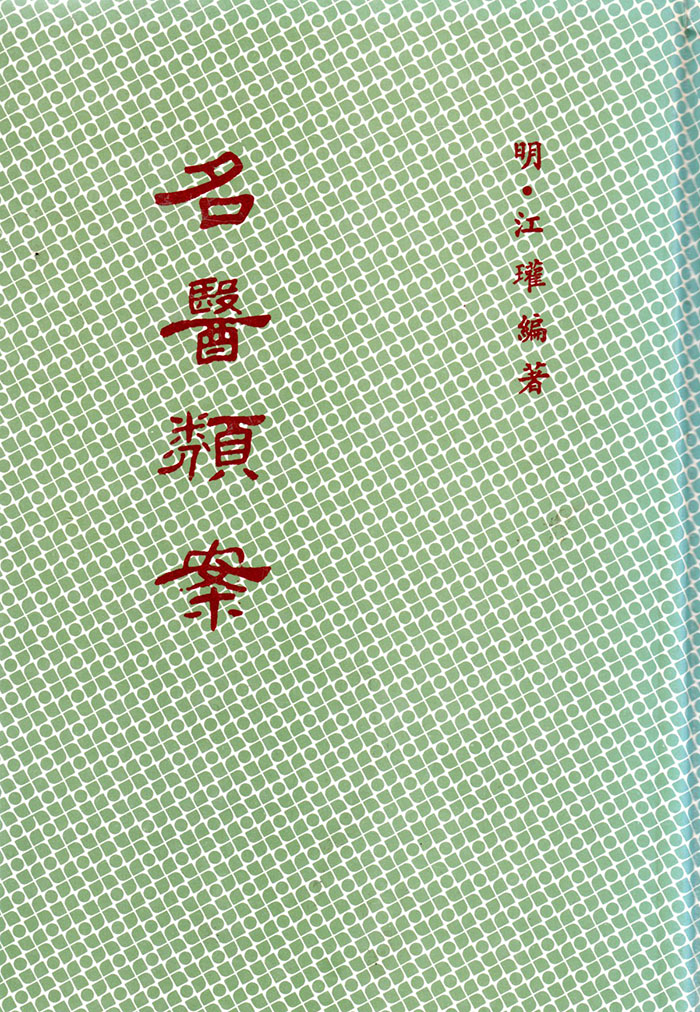 明·江瓘編著
名醫類案